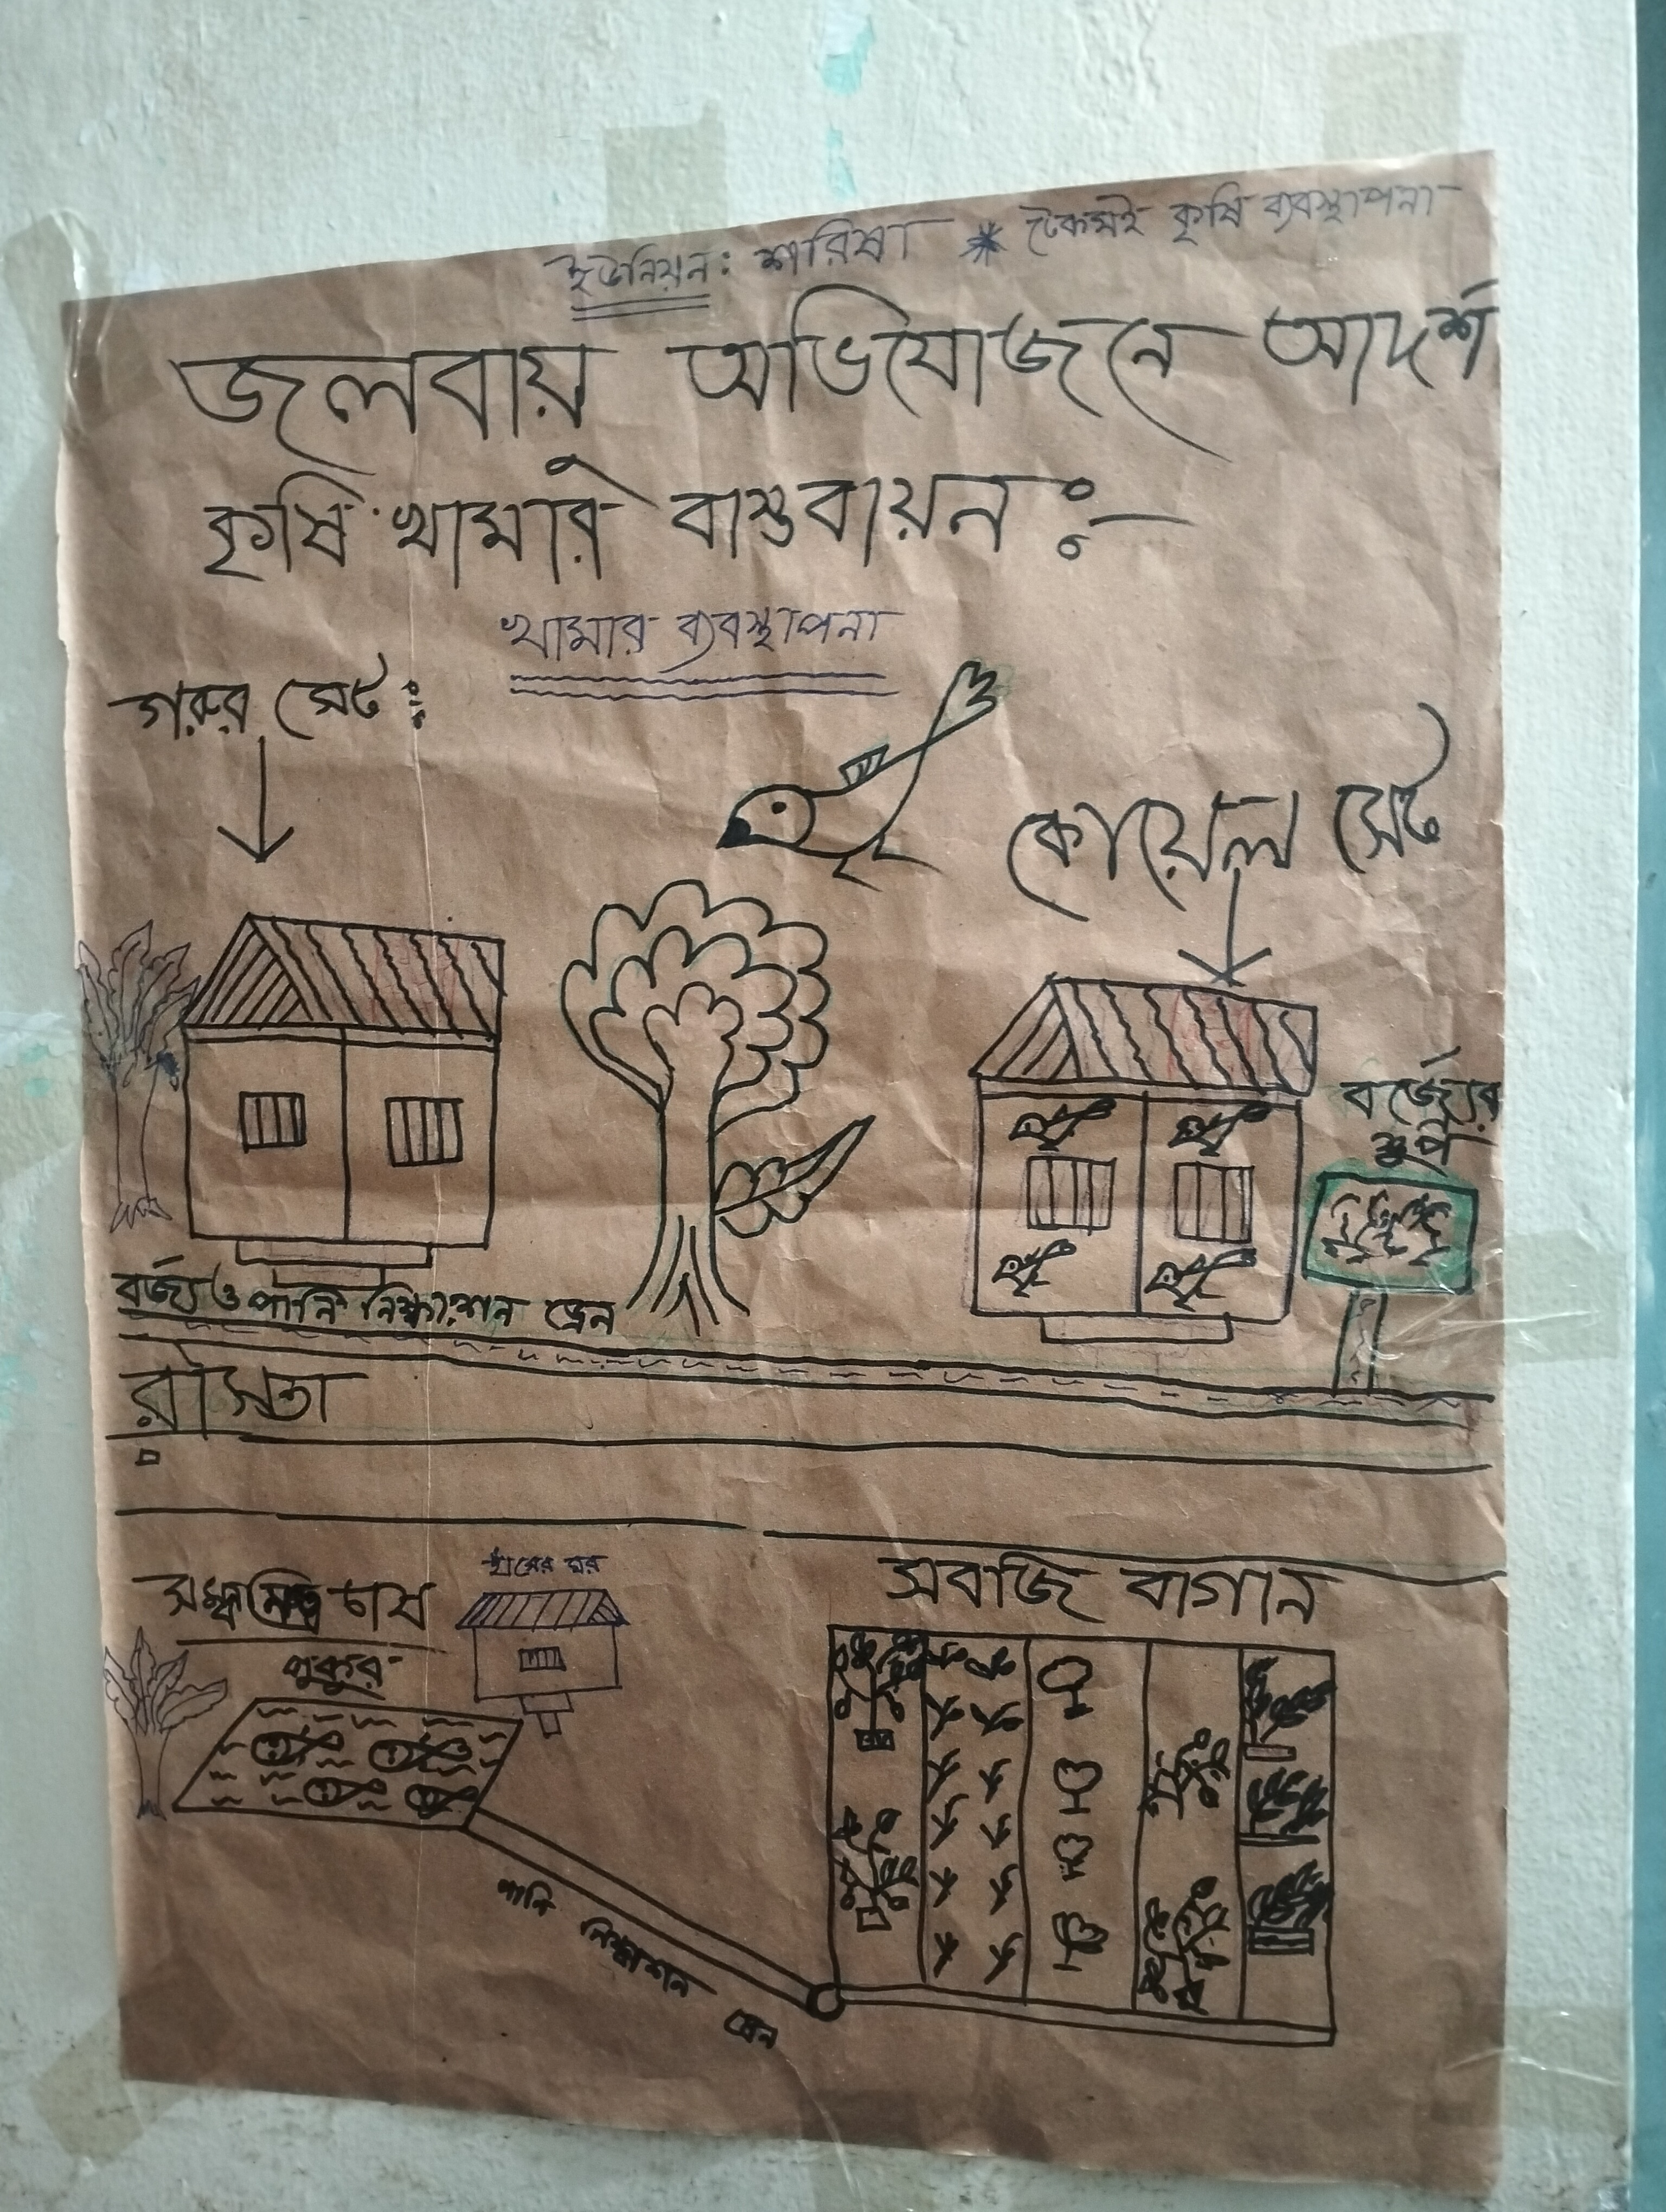 ইউনিয়ন: শরিষা * টেকসই কৃষি ব্যবস্থাপনা
জলবায়ু অভিযোজনে আদর্শ
কৃষি খামার বাস্তবায়ন :-
খামার ব্যবস্থাপনা
গরুর সেট :
কোয়েল সেট
বর্জ্যের
স্তুপ
বর্জ্য ও পানি নিষ্কাশন ড্রেন
রাস্তা
চাষ
পুকুর
ঘর
সবজি বাগান
পানি নিষ্কাশন ড্রেন